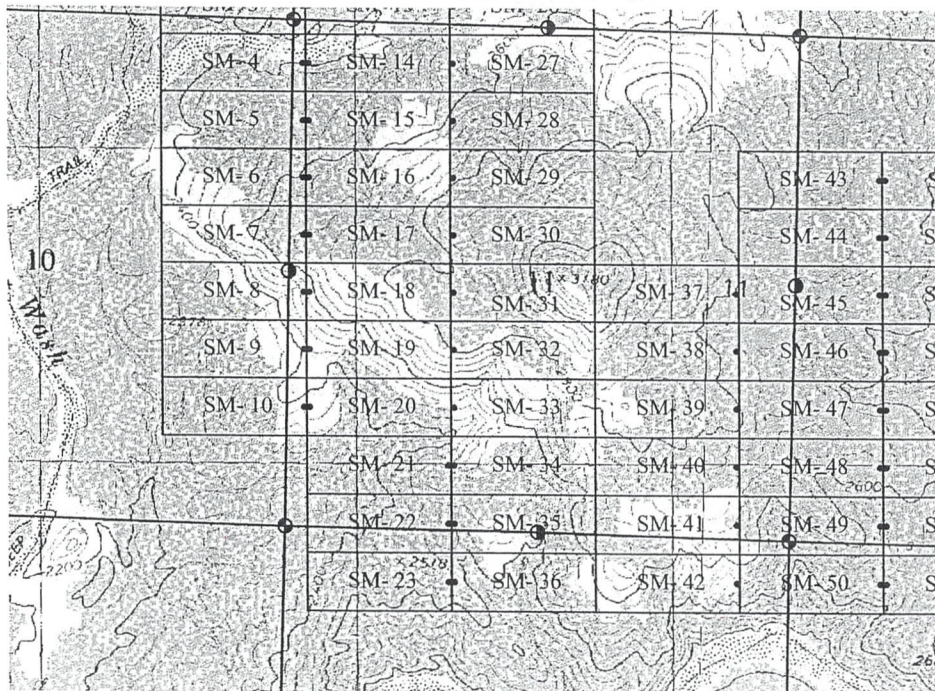 SM- 4 SM- 14 SM- 27
SM- 5 SM- 15 SM- 28
TRAIL
SM- 6 SM- 16 SM- 29 SM- 43
SM- 7 SM- 17 SM- 30 SM- 44
10
SM- 8 SM- 18 SM- 31 11 x 3180 SM- 37 SM- 45
Wash
SM- 9 SM- 19 SM- 32 SM- 38 SM- 46
SM- 10 SM- 20 SM- 33 SM- 39 SM- 47
SM- 21 SM- 34 SM- 40 SM- 48
2600
SM- 22 SM- 35 SM- 41 SM- 49
2200
x 2518
SM- 23 SM- 36 SM- 42 SM- 50